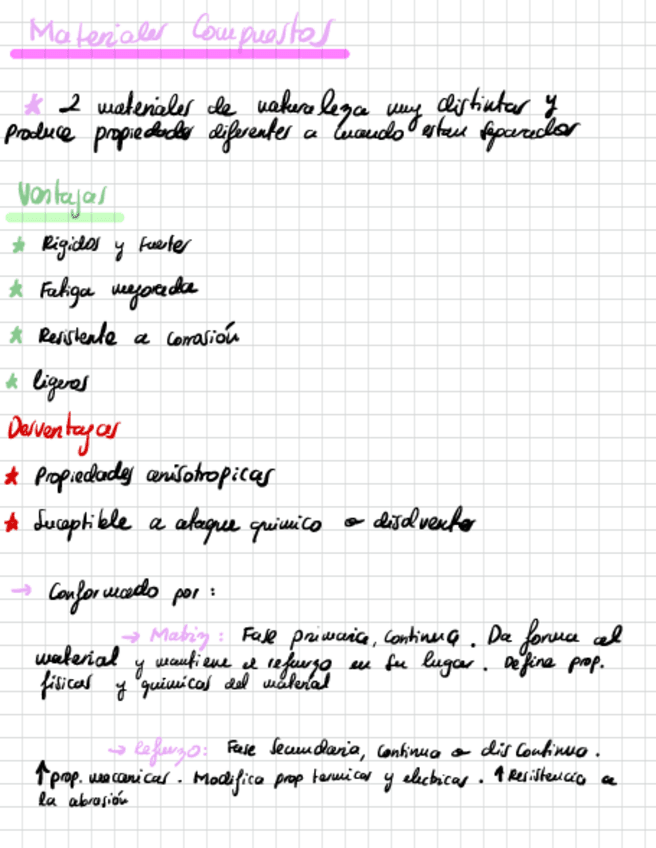 Materiales Compuestos
* 2 materiales de naturaleza muy distintas y
produce propiedades diferentes a cuando estan separados
Ventajas
* Rigidos y fuertes
* Fatiga mejorada
* Resistente a corrosión
* ligeros
Desventajas
* Propiedades anisotropicas
* Suceptible a ataque quimico o disolvente
→ Conformado por :
→ Matriz : Fase primaria, continua . Da forma al
material y mantiene el refuerzo en su lugar . Define prop.
fisicas y quimicas del material
→ Refuerzo: Fase Secundaria, continua o discontinua .
↑ prop. mecanicas . Modifica prop termicas y electricas . ↑ Resistencia a
la abrasión